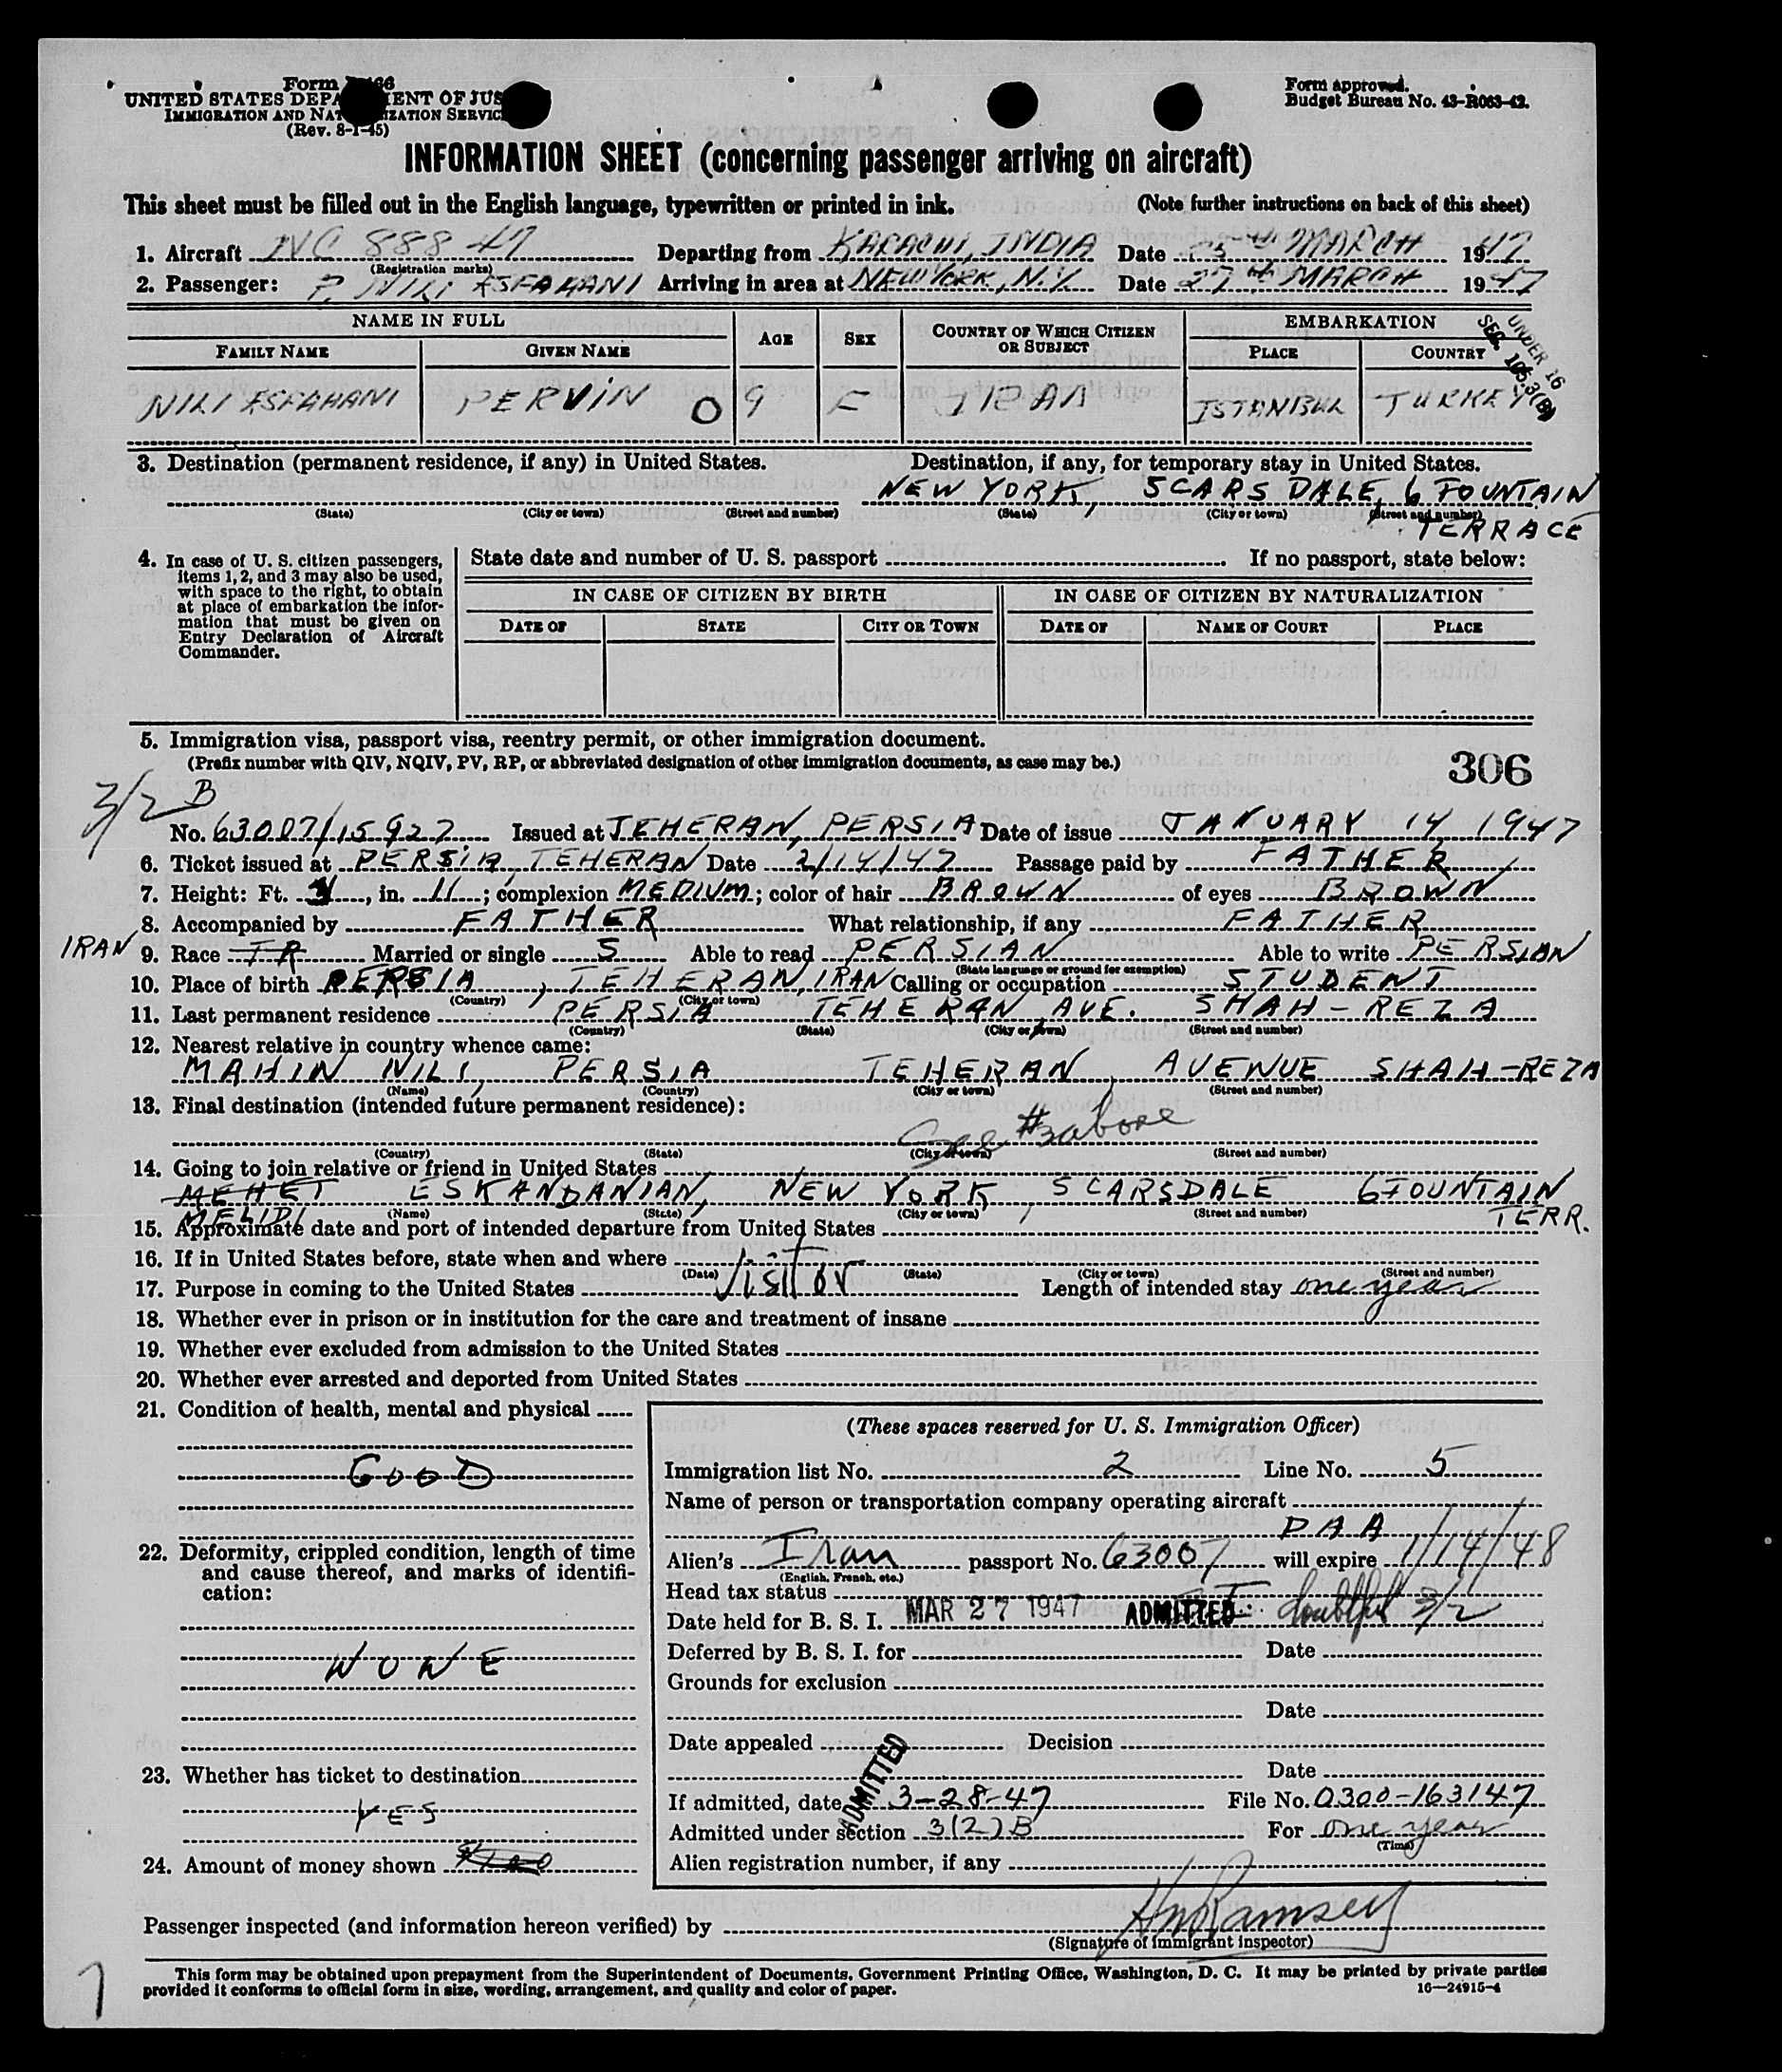 Form I-466
UNITED STATES DEPARTMENT OF JUSTICE
IMMIGRATION AND NATURALIZATION SERVICE
(Rev. 8-1-45)
Form approved.
Budget Bureau No. 43-R063-42.
INFORMATION SHEET (concerning passenger arriving on aircraft)
This sheet must be filled out in the English language, typewritten or printed in ink. (Note further instructions on back of this sheet)
1. Aircraft NC 888 47 Departing from KARACHI, INDIA Date 25th MARCH 1947
(Registration marks)
2. Passenger: P. NIKI ESFAHANI Arriving in area at NEW YORK, N.Y. Date 27th MARCH 1947
NAME IN FULL AGE SEX COUNTRY OF WHICH CITIZEN OR SUBJECT EMBARKATION
FAMILY NAME GIVEN NAME PLACE COUNTRY
UNDER 16
SEC. 105.3(B)
NIKI ESFAHANI PERVIN O 9 F IRAN ISTANBUL TURKEY
3. Destination (permanent residence, if any) in United States. Destination, if any, for temporary stay in United States.
NEW YORK, SCARSDALE, 6 FOUNTAIN
(State) (City or town) (Street and number) (State) (City or town) (Street and number)
TERRACE
4. In case of U. S. citizen passengers, items 1, 2, and 3 may also be used, with space to the right, to obtain at place of embarkation the information that must be given on Entry Declaration of Aircraft Commander.
State date and number of U. S. passport If no passport, state below:
IN CASE OF CITIZEN BY BIRTH IN CASE OF CITIZEN BY NATURALIZATION
DATE OF STATE CITY OR TOWN DATE OF NAME OF COURT PLACE
5. Immigration visa, passport visa, reentry permit, or other immigration document.
(Prefix number with QIV, NQIV, PV, RP, or abbreviated designation of other immigration documents, as case may be.)
306
3/2 B
No. 63007/15927 Issued at TEHERAN, PERSIA Date of issue JANUARY 14 1947
6. Ticket issued at PERSIA, TEHERAN Date 2/14/47 Passage paid by FATHER
7. Height: Ft. , in. 11; complexion MEDIUM; color of hair BROWN of eyes BROWN
8. Accompanied by FATHER What relationship, if any FATHER
IRAN 9. Race IR Married or single S Able to read PERSIAN Able to write PERSIAN
(State language or ground for exemption)
10. Place of birth PERSIA, TEHERAN, IRAN Calling or occupation STUDENT
(Country) (City or town)
11. Last permanent residence PERSIA TEHERAN, AVE. SHAH-REZA
(Country) (State) (City or town) (Street and number)
12. Nearest relative in country whence came:
MAHIN NIKI, PERSIA TEHERAN, AVENUE SHAH-REZA
(Name) (Country) (City or town) (Street and number)
13. Final destination (intended future permanent residence):
See #3 above
(Country) (State) (City or town) (Street and number)
14. Going to join relative or friend in United States
MEHET ESKANDANIAN, NEW YORK, SCARSDALE 6 FOUNTAIN
MEHDI (Name) (State) (City or town) (Street and number) TERR.
15. Approximate date and port of intended departure from United States
16. If in United States before, state when and where
(Date) (State) (City or town) (Street and number)
17. Purpose in coming to the United States Visitor Length of intended stay one year
18. Whether ever in prison or in institution for the care and treatment of insane
19. Whether ever excluded from admission to the United States
20. Whether ever arrested and deported from United States
21. Condition of health, mental and physical
GOOD
22. Deformity, crippled condition, length of time and cause thereof, and marks of identification:
NONE
23. Whether has ticket to destination
YES
24. Amount of money shown
(These spaces reserved for U. S. Immigration Officer)
Immigration list No. 2 Line No. 5
Name of person or transportation company operating aircraft
PAA
Alien's Iran passport No. 63007 will expire 1/14/48
(English, French, etc.)
Head tax status
Date held for B. S. I. MAR 27 1947 ADMITTED doubtful 3/2
Deferred by B. S. I. for Date
Grounds for exclusion
Date
Date appealed Decision
Date
ADMITTED
If admitted, date 3-28-47 File No. 0300-163147
Admitted under section 3(2)B For one year
(Time)
Alien registration number, if any
Passenger inspected (and information hereon verified) by HM Ramsey
(Signature of immigrant inspector)
This form may be obtained upon prepayment from the Superintendent of Documents, Government Printing Office, Washington, D. C. It may be printed by private parties
provided it conforms to official form in size, wording, arrangement, and quality and color of paper. 16—24915-4